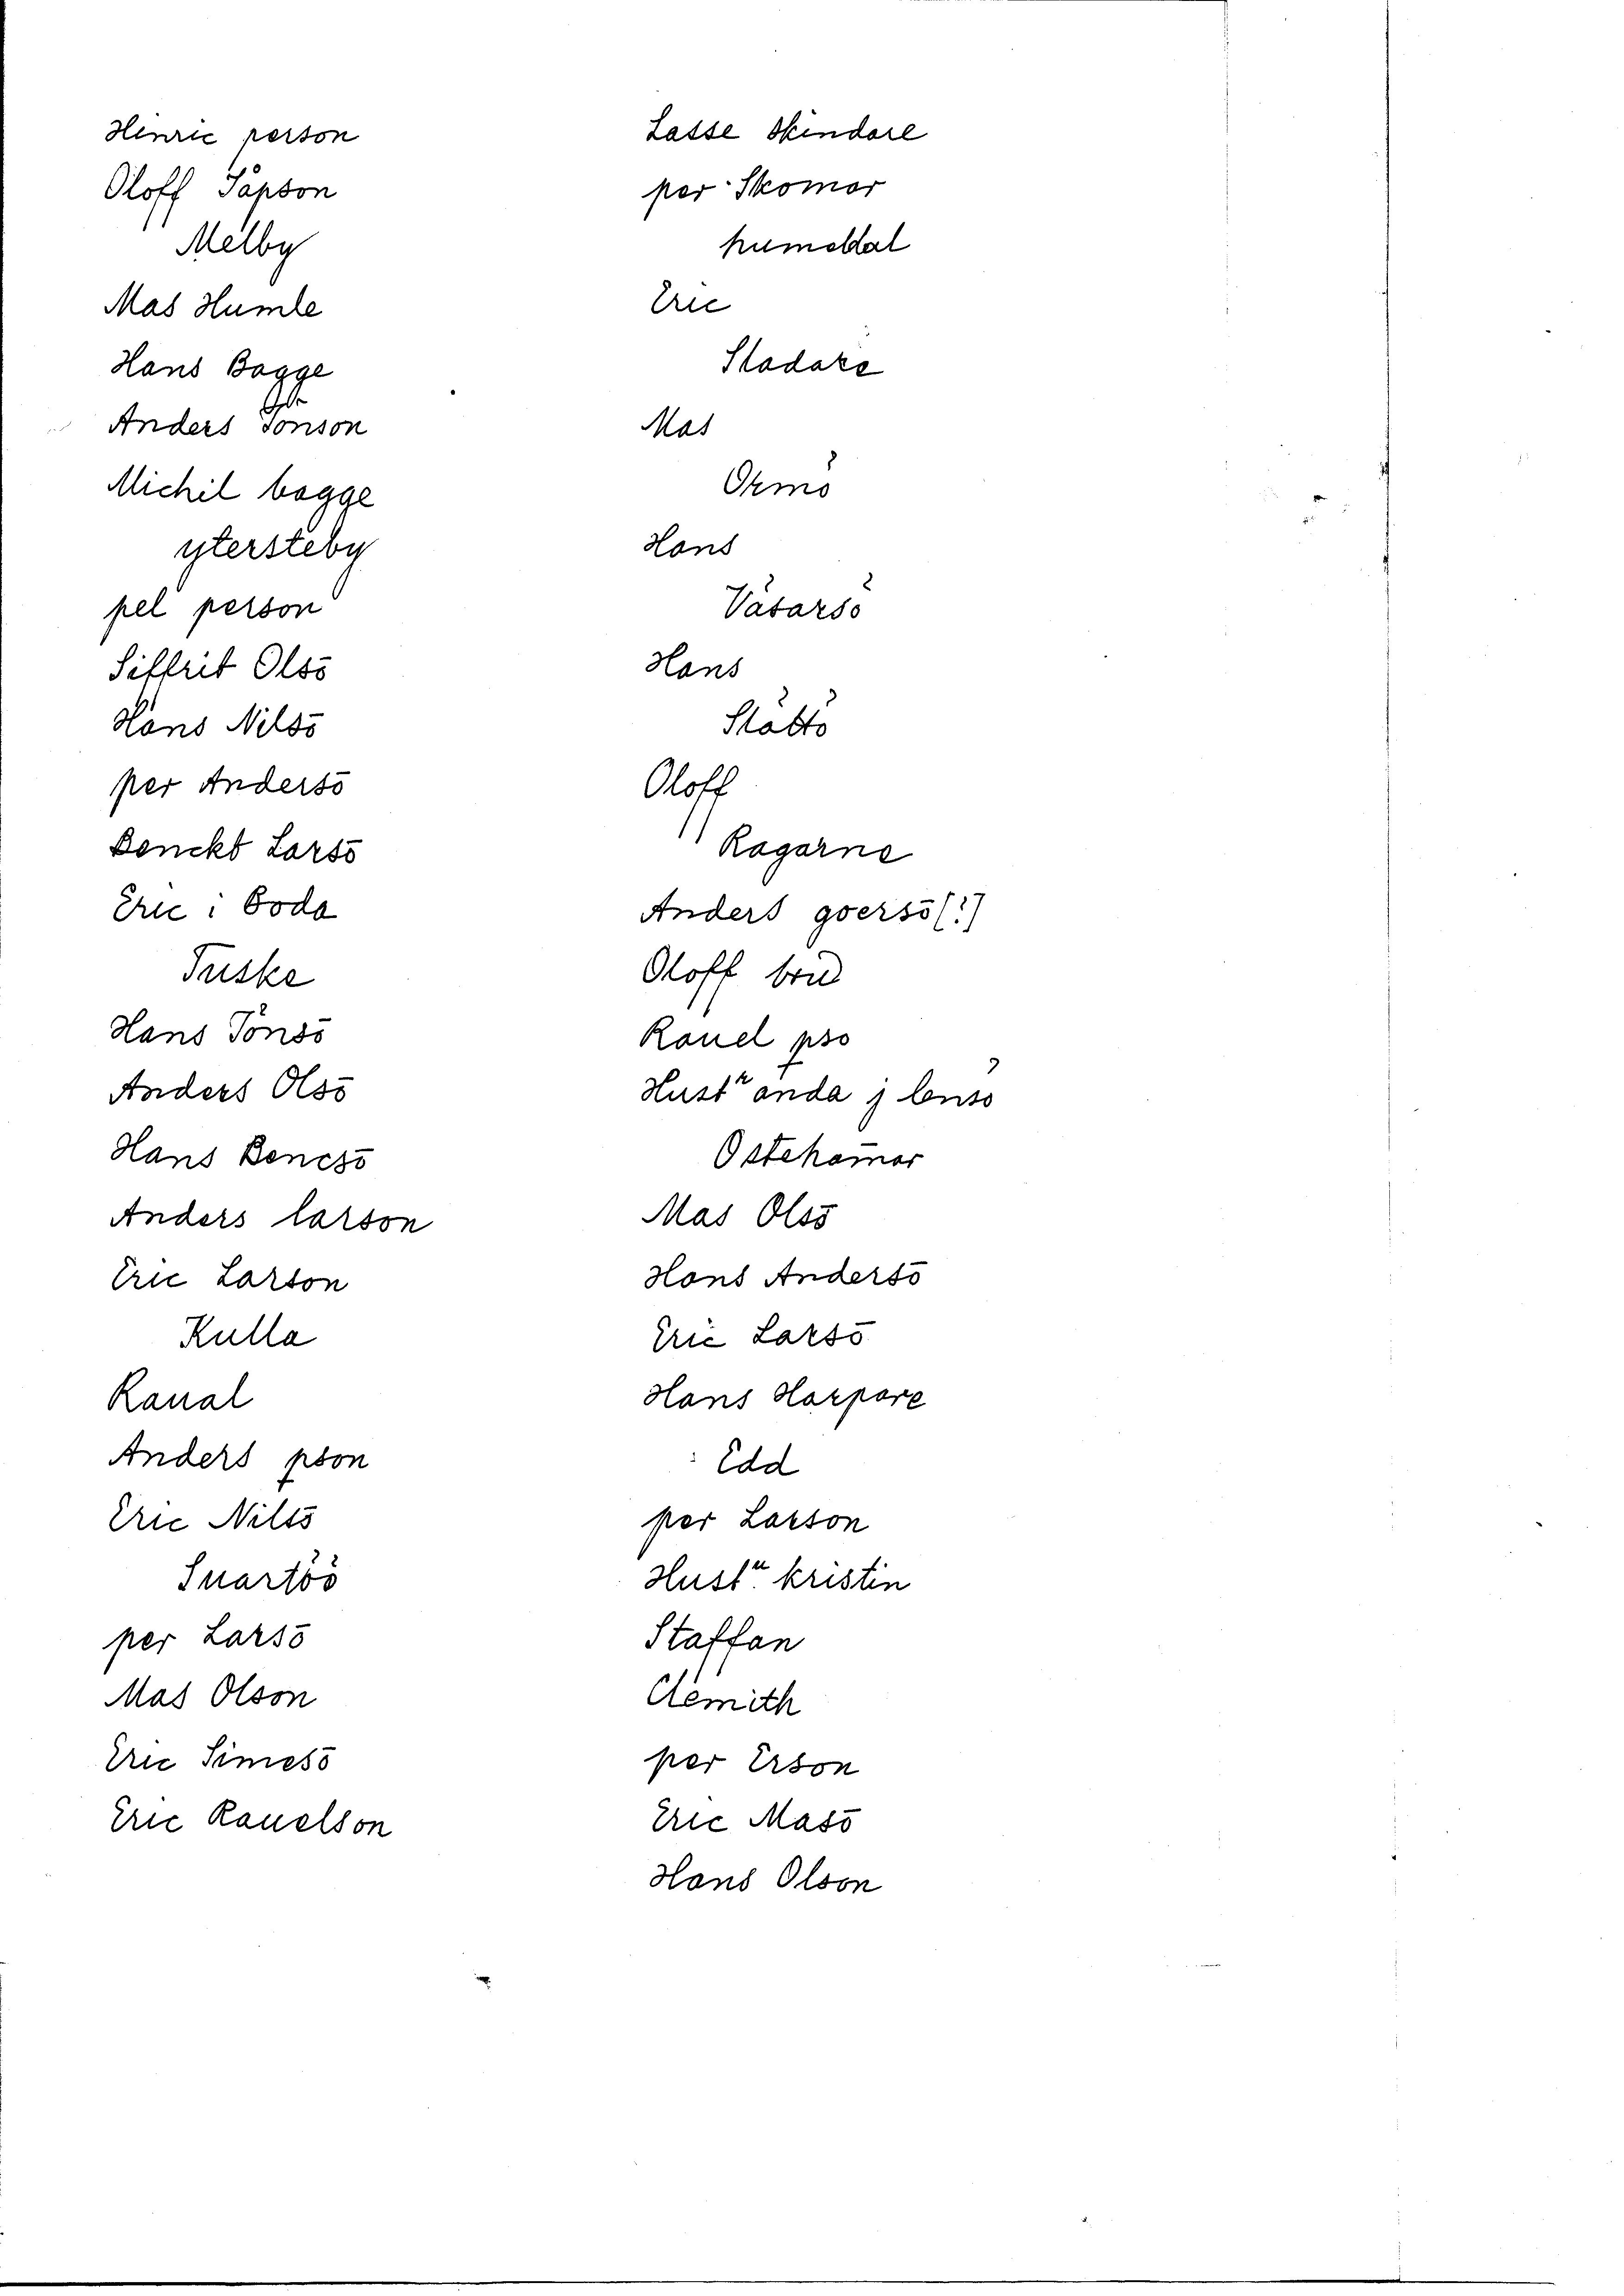 Henric person
Oloff Japson
Melby
Mas Humle
Hans Bagge
Anders Jonson
Michil bagge
ytersteby
pel person
Siffrit Olsō
Hans Nilsō
per Andersō
Benckt Larsō
Eric i Boda
Tuske
Hans Jonsō
Anders Olsō
Hans Bencsō
Anders larson
Eric Larson
Kulla
Raual
Anders pson
Eric Nilsō
Suartöö
per Larsō
Mas Olson
Eric Simesō
Eric Rauelson
Lasse Skindare
per Skomar
humeldal
Eric
Sladare
Mas
Ormö
Hans
Vätarsö
Hans
Slättö
Oloff
Ragarne
Anders goersō(?)
Oloff bru
Rauel pso
Hustʳ anda j lensö
Östehām̄ar
Mas Olsō
Hans Andersō
Eric Larsō
Hans Harpare
Edd
per Larson
Hustᵘ kristin
Staffan
Clemith
per Erson
Eric Masō
Hans Olson